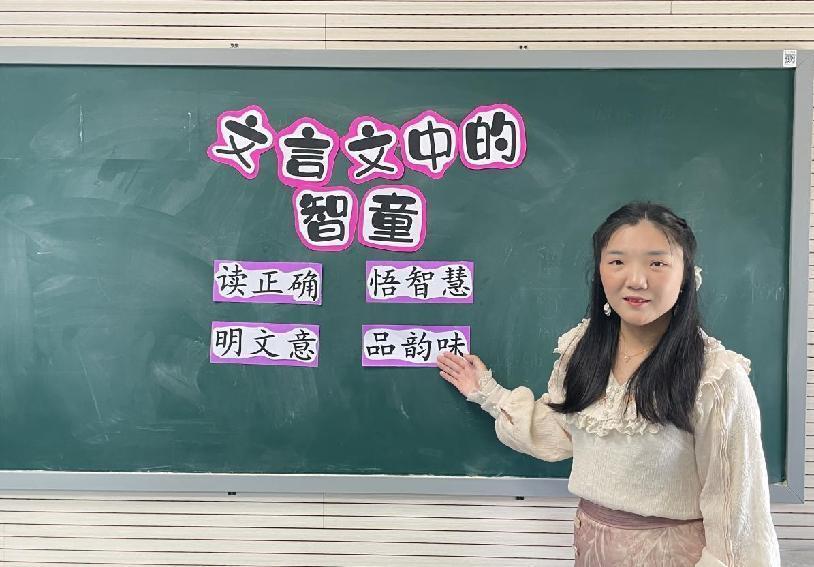 文言文中的
智童
读正确 悟智慧
明文意 品韵味